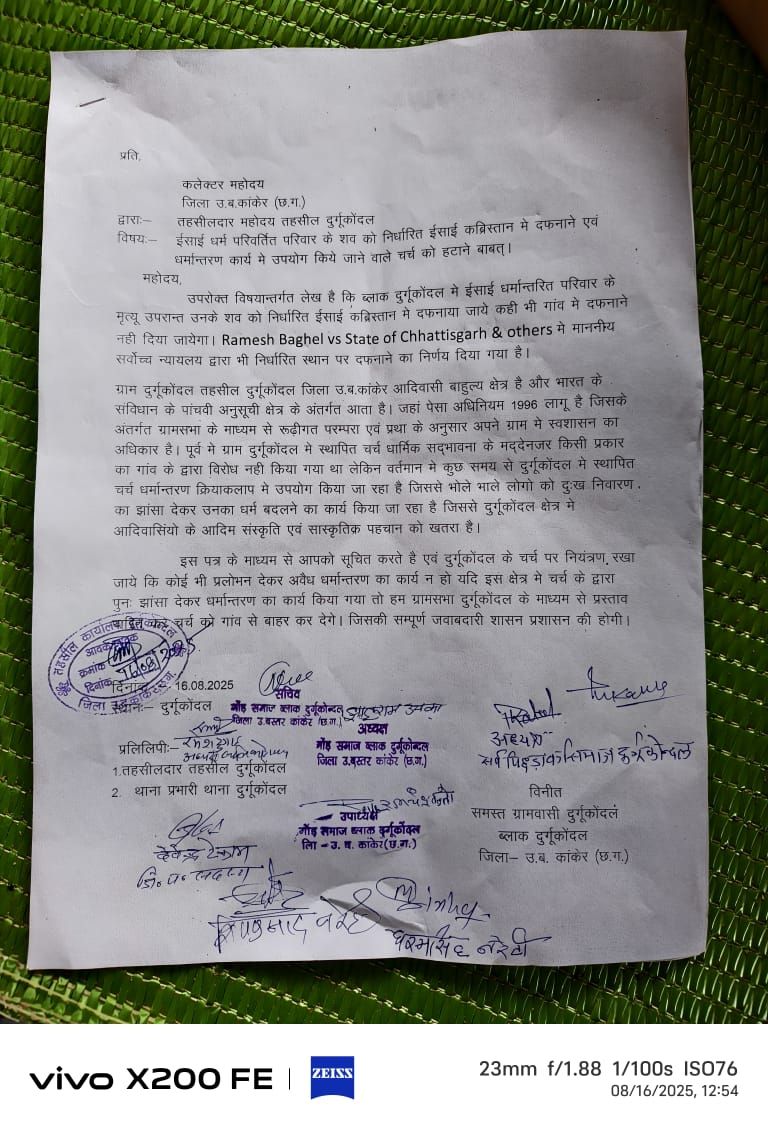 प्रति,
कलेक्टर महोदय
जिला उ.ब.कांकेर (छ.ग.)
द्वाराः– तहसीलदार महोदय तहसील दुर्गूकोंदल
विषयः– ईसाई धर्म परिवर्तित परिवार के शव को निर्धारित ईसाई कब्रिस्तान मे दफनाने एवं
धर्मान्तरण कार्य मे उपयोग किये जाने वाले चर्च को हटाने बाबत्।
महोदय,
उपरोक्त विषयान्तर्गत लेख है कि ब्लाक दुर्गूकोंदल मे ईसाई धर्मान्तरित परिवार के
मृत्यू उपरान्त उनके शव को निर्धारित ईसाई कब्रिस्तान मे दफनाया जाये कही भी गांव मे दफनाने
नही दिया जायेगा। Ramesh Baghel vs State of Chhattisgarh & others मे माननीय
सर्वोच्च न्यायलय द्वारा भी निर्धारित स्थान पर दफनाने का निर्णय दिया गया है।
ग्राम दुर्गूकोंदल तहसील दुर्गूकोंदल जिला उ.ब.कांकेर आदिवासी बाहुल्य क्षेत्र है और भारत के
संविधान के पांचवी अनुसूची क्षेत्र के अंतर्गत आता है। जहां पेसा अधिनियम 1996 लागू है जिसके
अंतर्गत ग्रामसभा के माध्यम से रूढ़ीगत परम्परा एवं प्रथा के अनुसार अपने ग्राम मे स्वशासन का
अधिकार है। पूर्व मे ग्राम दुर्गूकोंदल मे स्थापित चर्च धार्मिक सद्भावना के मद्देनजर किसी प्रकार
का गांव के द्वारा विरोध नही किया गया था लेकिन वर्तमान मे कुछ समय से दुर्गूकोंदल मे स्थापित
चर्च धर्मान्तरण क्रियाकलाप मे उपयोग किया जा रहा है जिससे भोले भाले लोगो को दुःख निवारण
का झांसा देकर उनका धर्म बदलने का कार्य किया जा रहा है जिससे दुर्गूकोंदल क्षेत्र मे
आदिवासियो के आदिम संस्कृति एवं सास्कृतिक पहचान को खतरा है।
इस पत्र के माध्यम से आपको सूचित करते है एवं दुर्गूकोंदल के चर्च पर नियंत्रण रखा
जाये कि कोई भी प्रलोभन देकर अवैध धर्मान्तरण का कार्य न हो यदि इस क्षेत्र मे चर्च के द्वारा
पुनः झांसा देकर धर्मान्तरण का कार्य किया गया तो हम ग्रामसभा दुर्गूकोंदल के माध्यम से प्रस्ताव
चर्च को गांव से बाहर कर देगे। जिसकी सम्पूर्ण जवाबदारी शासन प्रशासन की होगी।
तहसील कार्यालय
क्रमांक
दिनांक
जिला
दिनांक 16.08.2025
सचिव
गोंड समाज ब्लाक दुर्गूकोन्दल
जिला उ.बस्तर कांकेर (छ.ग.)
स्थानः– दुर्गूकोंदल
अध्यक्ष
गोंड समाज ब्लाक दुर्गूकोंदल
जिला उ.बस्तर कांकेर (छ.ग.)
अध्यक्ष
प्रतिलिपीः–
1.तहसीलदार तहसील दुर्गूकोंदल
2. थाना प्रभारी थाना दुर्गूकोंदल
उपाध्यक्ष
गोंड समाज ब्लाक दुर्गूकोंदल
उ. ब. कांकेर(छ.ग.)
विनीत
समस्त ग्रामवासी दुर्गूकोंदल
ब्लाक दुर्गूकोंदल
जिला– उ.ब. कांकेर (छ.ग.)
धरमसिंह नरेटी
vivo X200 FE | ZEISS
23mm f/1.88 1/100s ISO76
08/16/2025, 12:54